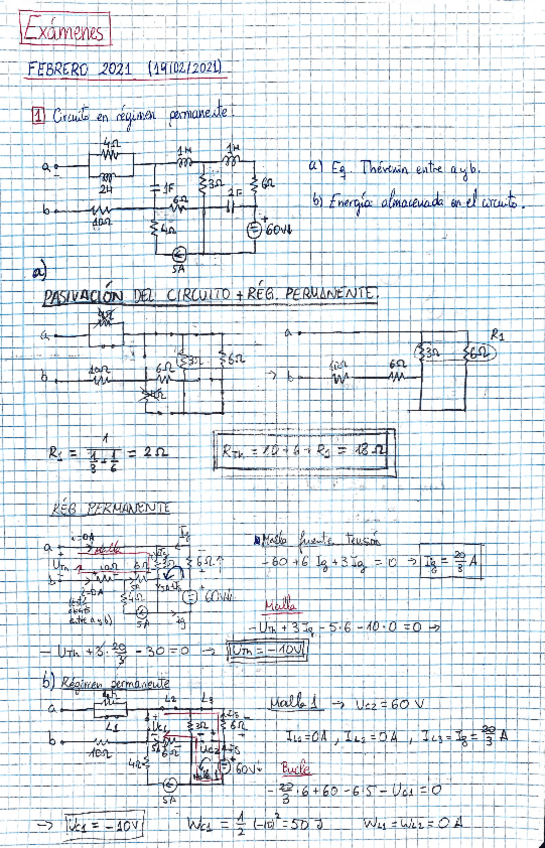 Exámenes
FEBRERO 2021 (19/02/2021)
1 Circuito en régimen permanente.
4Ω
1H 1H
a
2H
1F 3Ω 2F 6Ω
b
10Ω
6Ω
4Ω
60V
5A
a) Eq. Thévenin entre a y b.
b) Energía almacenada en el circuito.
a)
PASIVACIÓN DEL CIRCUITO + RÉG. PERMANENTE.
a
b
10Ω 6Ω 3Ω 6Ω
a
b
10Ω 6Ω 3Ω 6Ω R1
R1 = 1 / (1/3 + 1/6) = 2Ω
RTh = 10 + 6 + R1 = 18Ω
RÉG PERMANENTE
a
UTh
b
10Ω 6Ω 3Ω 6Ω
4Ω
60V
5A
Malla fuente tensión
-60 + 6 Ig + 3 Ig = 0 → Ig = 20/3 A
Malla
-UTh + 3 Ig - 5·6 - 10·0 = 0 →
-UTh + 3·20/3 - 30 = 0 → UTh = -10V
b) Régimen permanente
a
L1 L2 L3
b
10Ω
4Ω
3Ω 6Ω
UC1
UC2
60V
5A
Malla 1 → UC2 = 60 V
IL1 = 0A, IL2 = 0A, IL3 = Ig = 20/3 A
Bucle
-20/3·6 + 60 - 6·5 - UC1 = 0
→ UC1 = -10V WC1 = 1/2 (-10)² = 50 J WL1 = WL2 = 0 A